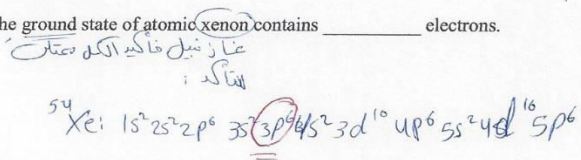 he ground state of atomic xenon contains __________ electrons.
غاز نبيل فأكيد الكل
للتأكد :
54Xe: 1s² 2s² 2p⁶ 3s² 3p⁶ 4s² 3d¹⁰ 4p⁶ 5s² 4d¹⁰ 5p⁶